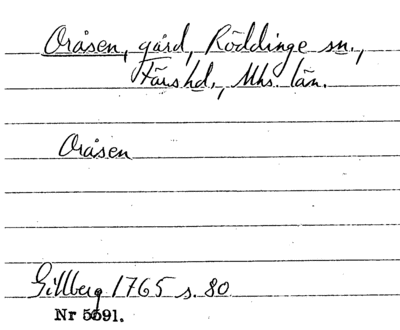 Oråsen, gård, Röddinge sn.,
Färs hd., Mhs. län.
Oråsen
Gillberg 1765 s. 80
Nr 5591.